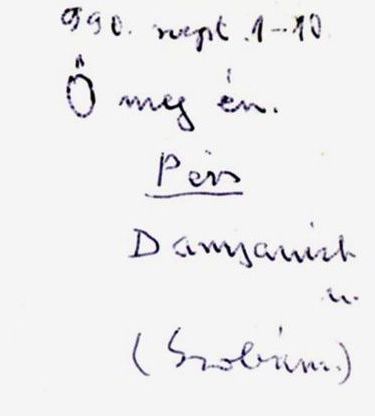 990. szept. 1–10
Ő meg én.
Pécs
Damjanich
u.
(Szobám.)